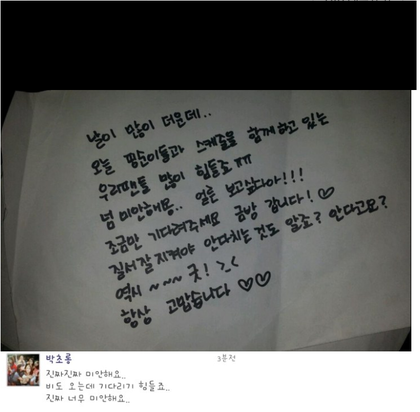 날이 많이 더운데..
오늘 팡순이들과 스케줄을 함께하고 있는
우리팬들 많이 힘들죠ㅠㅠ
넘 미안해용.. 얼른 보고싶다아!!!
조금만 기다려주세요 금방 갑니다!♡
질서잘지켜야 안다치는것도 알죠? 안다고요?
역시 ~~~ 굿! >.<
항상 고맙습니다 ♡♡
박초롱
3분전
진짜진짜 미안해요..
비도 오는데 기다리기 힘들죠..
진짜 너무 미안해요..